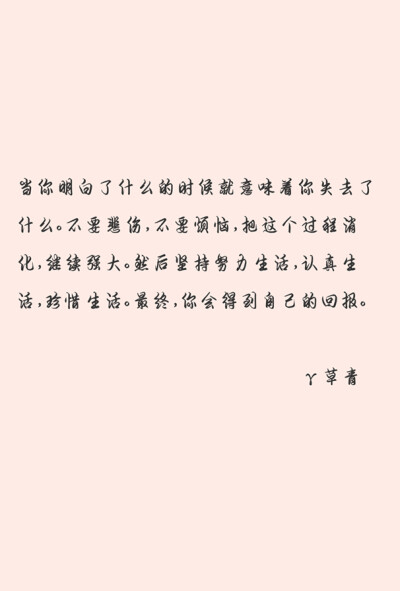 当你明白了什么的时候就意味着你失去了
什么。不要悲伤,不要烦恼,把这个过程消
化,继续强大。然后坚持努力生活,认真生
活,珍惜生活。最终,你会得到自己的回报。
γ草青